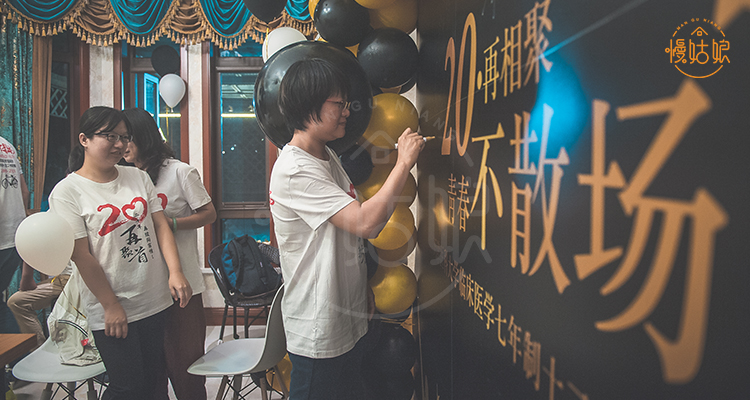 MAN GU NIANG
慢姑娘
20·再相聚
青春不散场
临床医学七年制十
20
再聚首